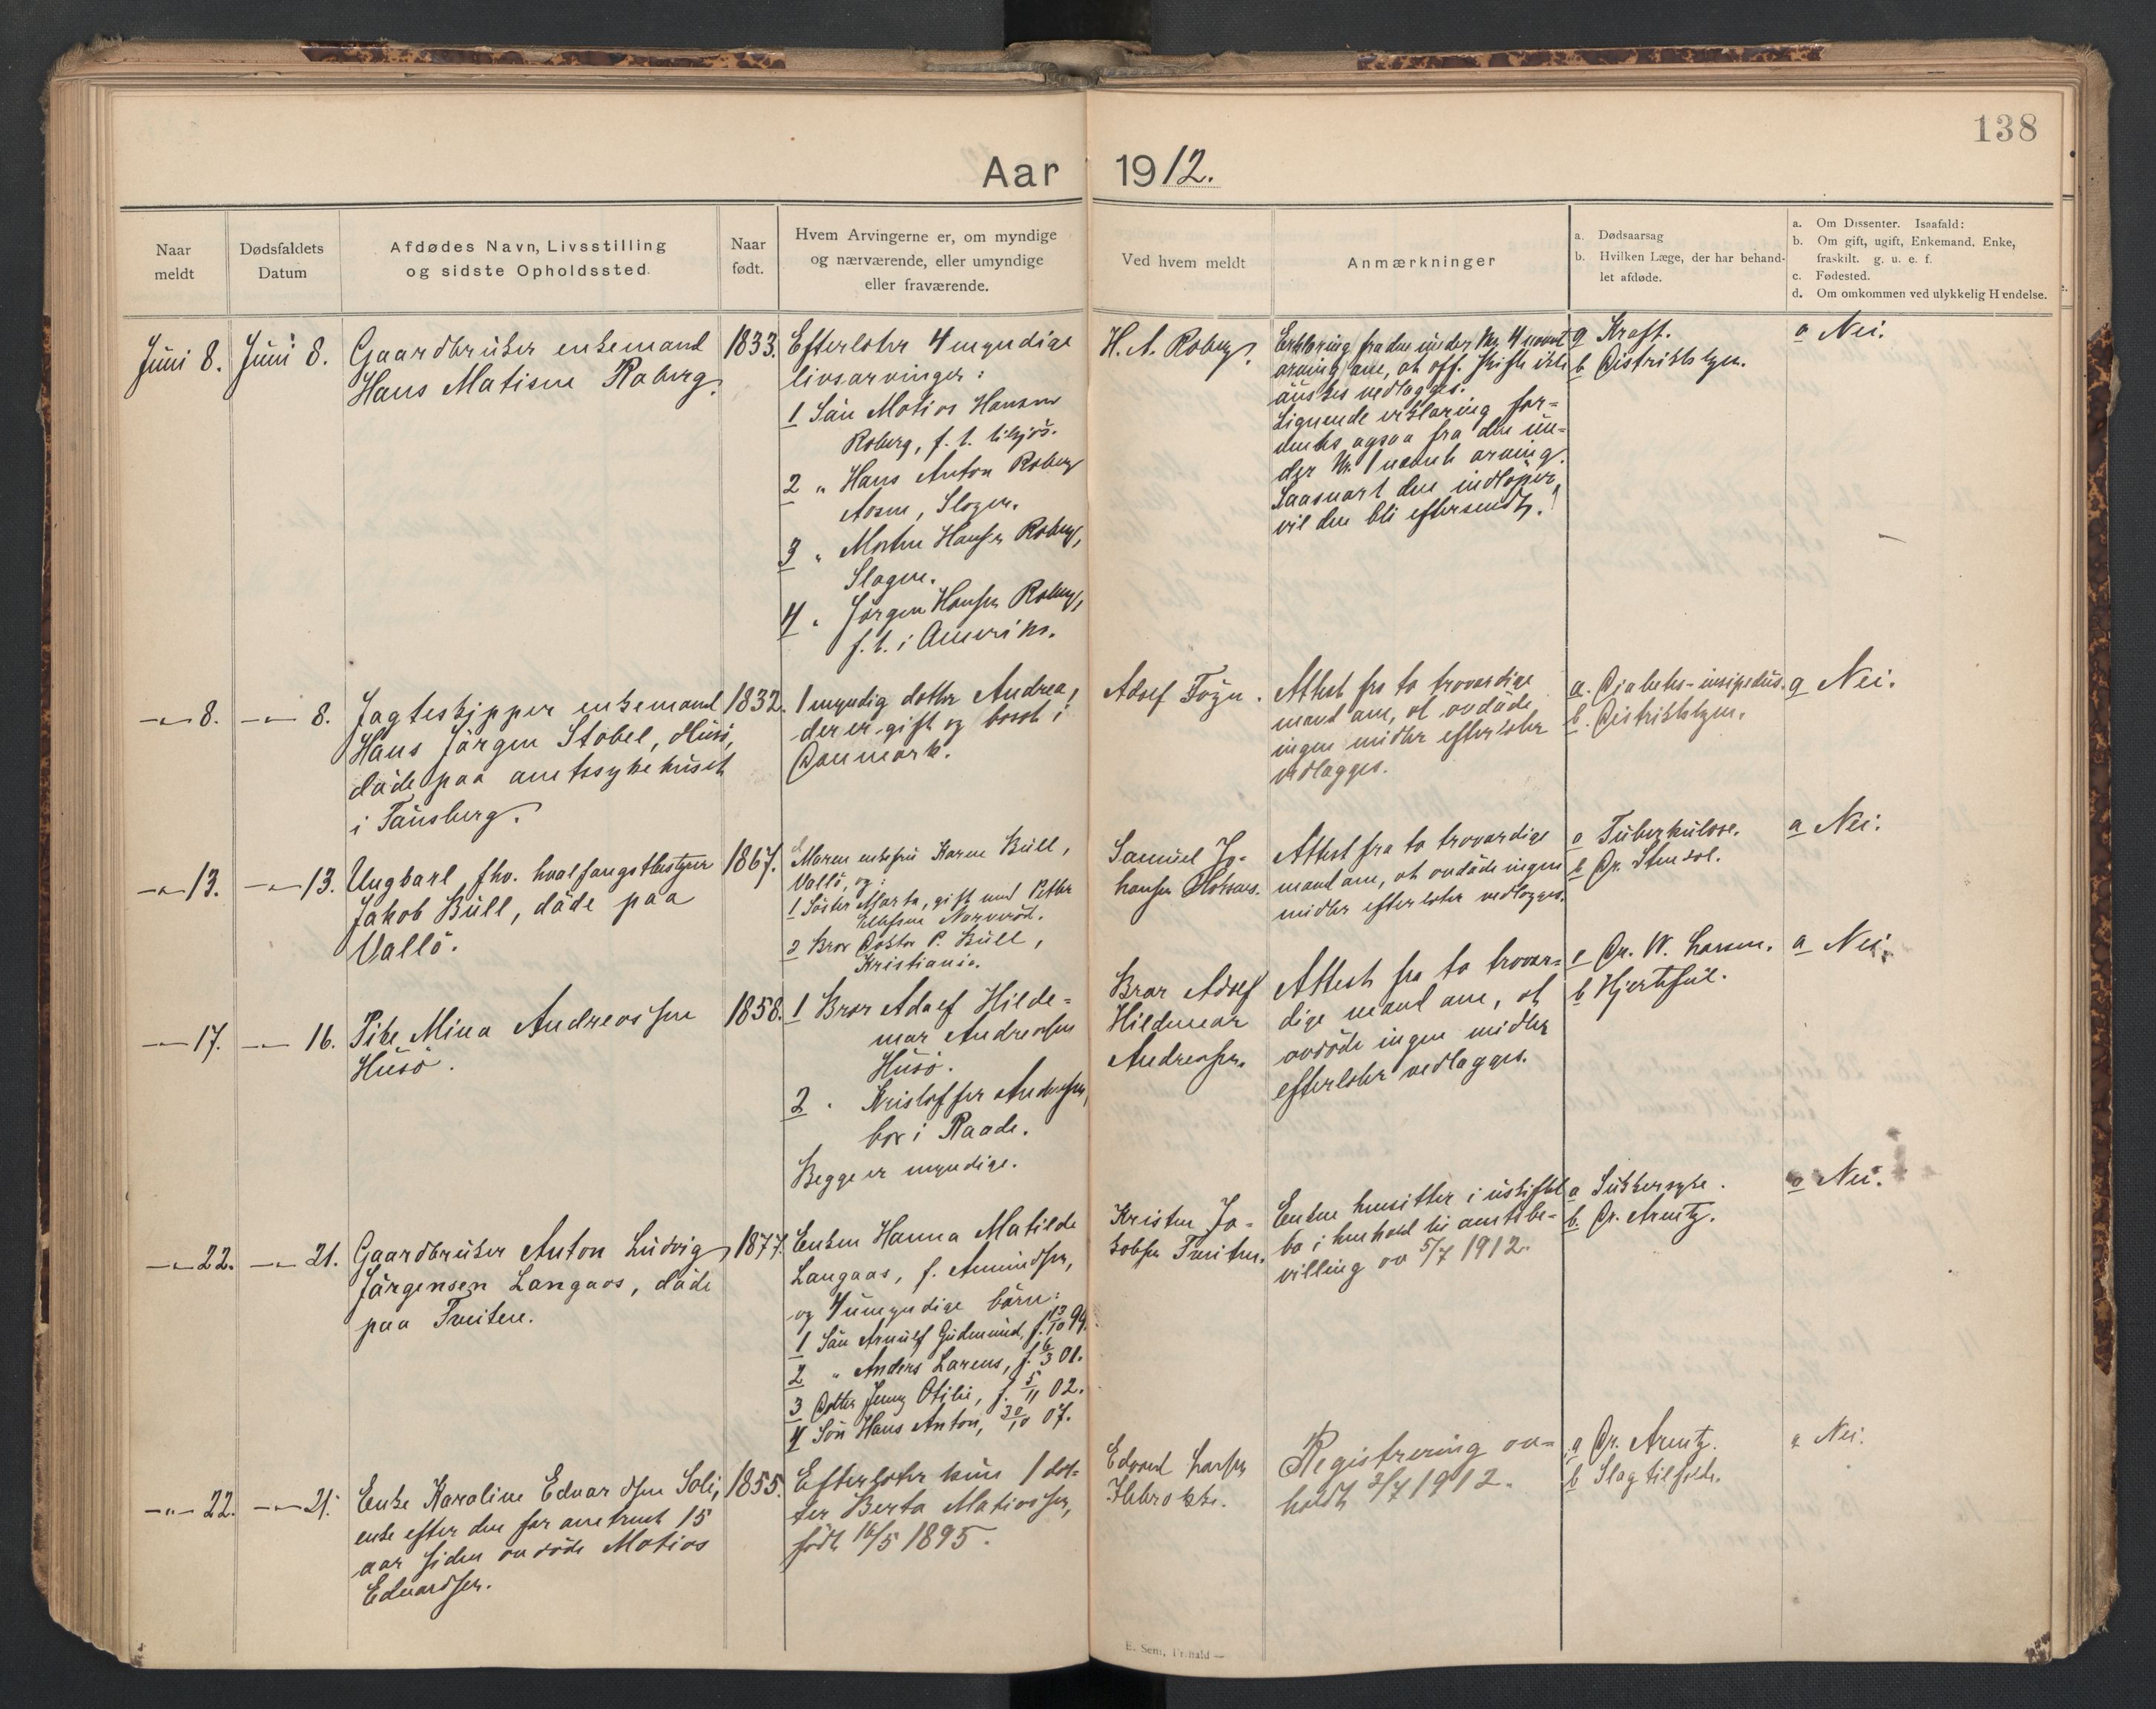 138
Aar 1912.
Naar meldt
Dødsfaldets Datum
Afdødes Navn, Livsstilling og sidste Opholdssted.
Naar født.
Hvem Arvingerne er, om myndige og nærværende, eller umyndige eller fraværende.
Ved hvem meldt
Anmærkninger
a. Dødsaarsag
b. Hvilken Læge, der har behandlet afdøde.
a. Om Dissenter. Isaafald:
b. Om gift, ugift, Enkemand, Enke, fraskilt. g. u. e. f.
c. Fødested.
d. Om omkommen ved ulykkelig Hændelse.
Juni 8.
Juni 8.
Gaardbruker enkemand
Hans Matisen Roberg.
1833.
Efterlater 4 myndige
livsarvinger:
1 Sön Matias Hansen
Roberg, f. t. tilsjös.
2 " Hans Anton Roberg
Aasen, Slagen.
3 " Morten Hansen Roberg,
Slagen.
4 " Jörgen Hansen Roberg,
f. t. i Amerika.
H. A. Roberg.
Erklæring fra den under Nr. 4 nævnt
arving om, at off. skifte ikke
önskes vedlægges.
Lignende erklæring for-
ventes ogsaa fra den un-
der Nr. 1 nævnte arving.
Saasnart den indlöper,
vil den bli eftersendt.
a Kræft.
b Distriktslægen.
a Nei.
-"- 8.
-"- 8.
Jagteskipper enkemand
Hans Jörgen Stabel, Husö,
döde paa amtssykehuset
i Tönsberg.
1832.
1 myndig datter Andrea,
der er gift og bosat i
Danmark.
Adolf Föyn.
Attest fra to troværdige
mænd om, at avdöde
ingen midler efterlater
vedlægges.
a. Diabetes-insipidus.
b. Distriktslægen.
a Nei.
-"- 13.
-"- 13.
Ungkarl, fhv. hvalfangstbestyrer
Jakob Bull, döde paa
Vallö.
1867.
Moren enkefru Karen Bull,
Vallö, og:
1 Söster Marta, gift med Petter
Ellefsen Narveröd.
2 Bror Doktor P. Bull,
Kristiania.
Samuel Jo-
hansen
Attest fra to troværdige
mænd om, at avdöde ingen
midler efterlater vedlægges.
a Tuberkulose.
b Dr. Stensol.
a Nei.
-"- 17.
-"- 16.
Pike Mina Andreassen
Husö.
1858.
1 Bror Adolf Hilde-
mar Andreassen
Husö.
2 " Kristoffer Andreassen,
bor i Raade.
Begge er myndige.
Bror Adolf
Hildemar
Andreassen.
Attest fra to trovær-
dige mænd om, at
avdöde ingen midler
efterlater vedlægges.
a Dr. W. Larsen.
b Hjertefeil.
a Nei.
-"- 22.
-"- 21.
Gaardbruker Anton Ludvig
Jörgensen Langaas, döde
paa Tveiten.
1877.
Enken Hanna Matilde
Langaas, f. Amundsen,
og 4 umyndige börn:
1 Sön Arnulf Gudmund, f. 13/10 99.
2 " Anders Larens, f. 6/3 01.
3 Datter Jenny Otilie, f. 5/11 02.
4 Sön Hans Anton, 30/10 07.
Kristen Ja-
kobsen Tveiten.
Enken hensitter i uskiftet
bo i henhold til amtsbe-
villing av 5/7 1912.
a Sukkersyke.
b. Dr. Arentz.
a Nei.
-"- 22.
-"- 21.
Enke Karoline Edvardsen Solli,
enke efter den for omtrent 15
aar siden avdöde Matias
Edvardsen.
1855.
Efterlater kun 1 dat-
ter Berta Matiassen,
född 16/5 1895.
Edvard Larsen
Registrering av-
holdt 2/7 1912.
a Dr. Arentz.
b Slagtilfælde.
a Nei.
E. Sem, Fr.hald —